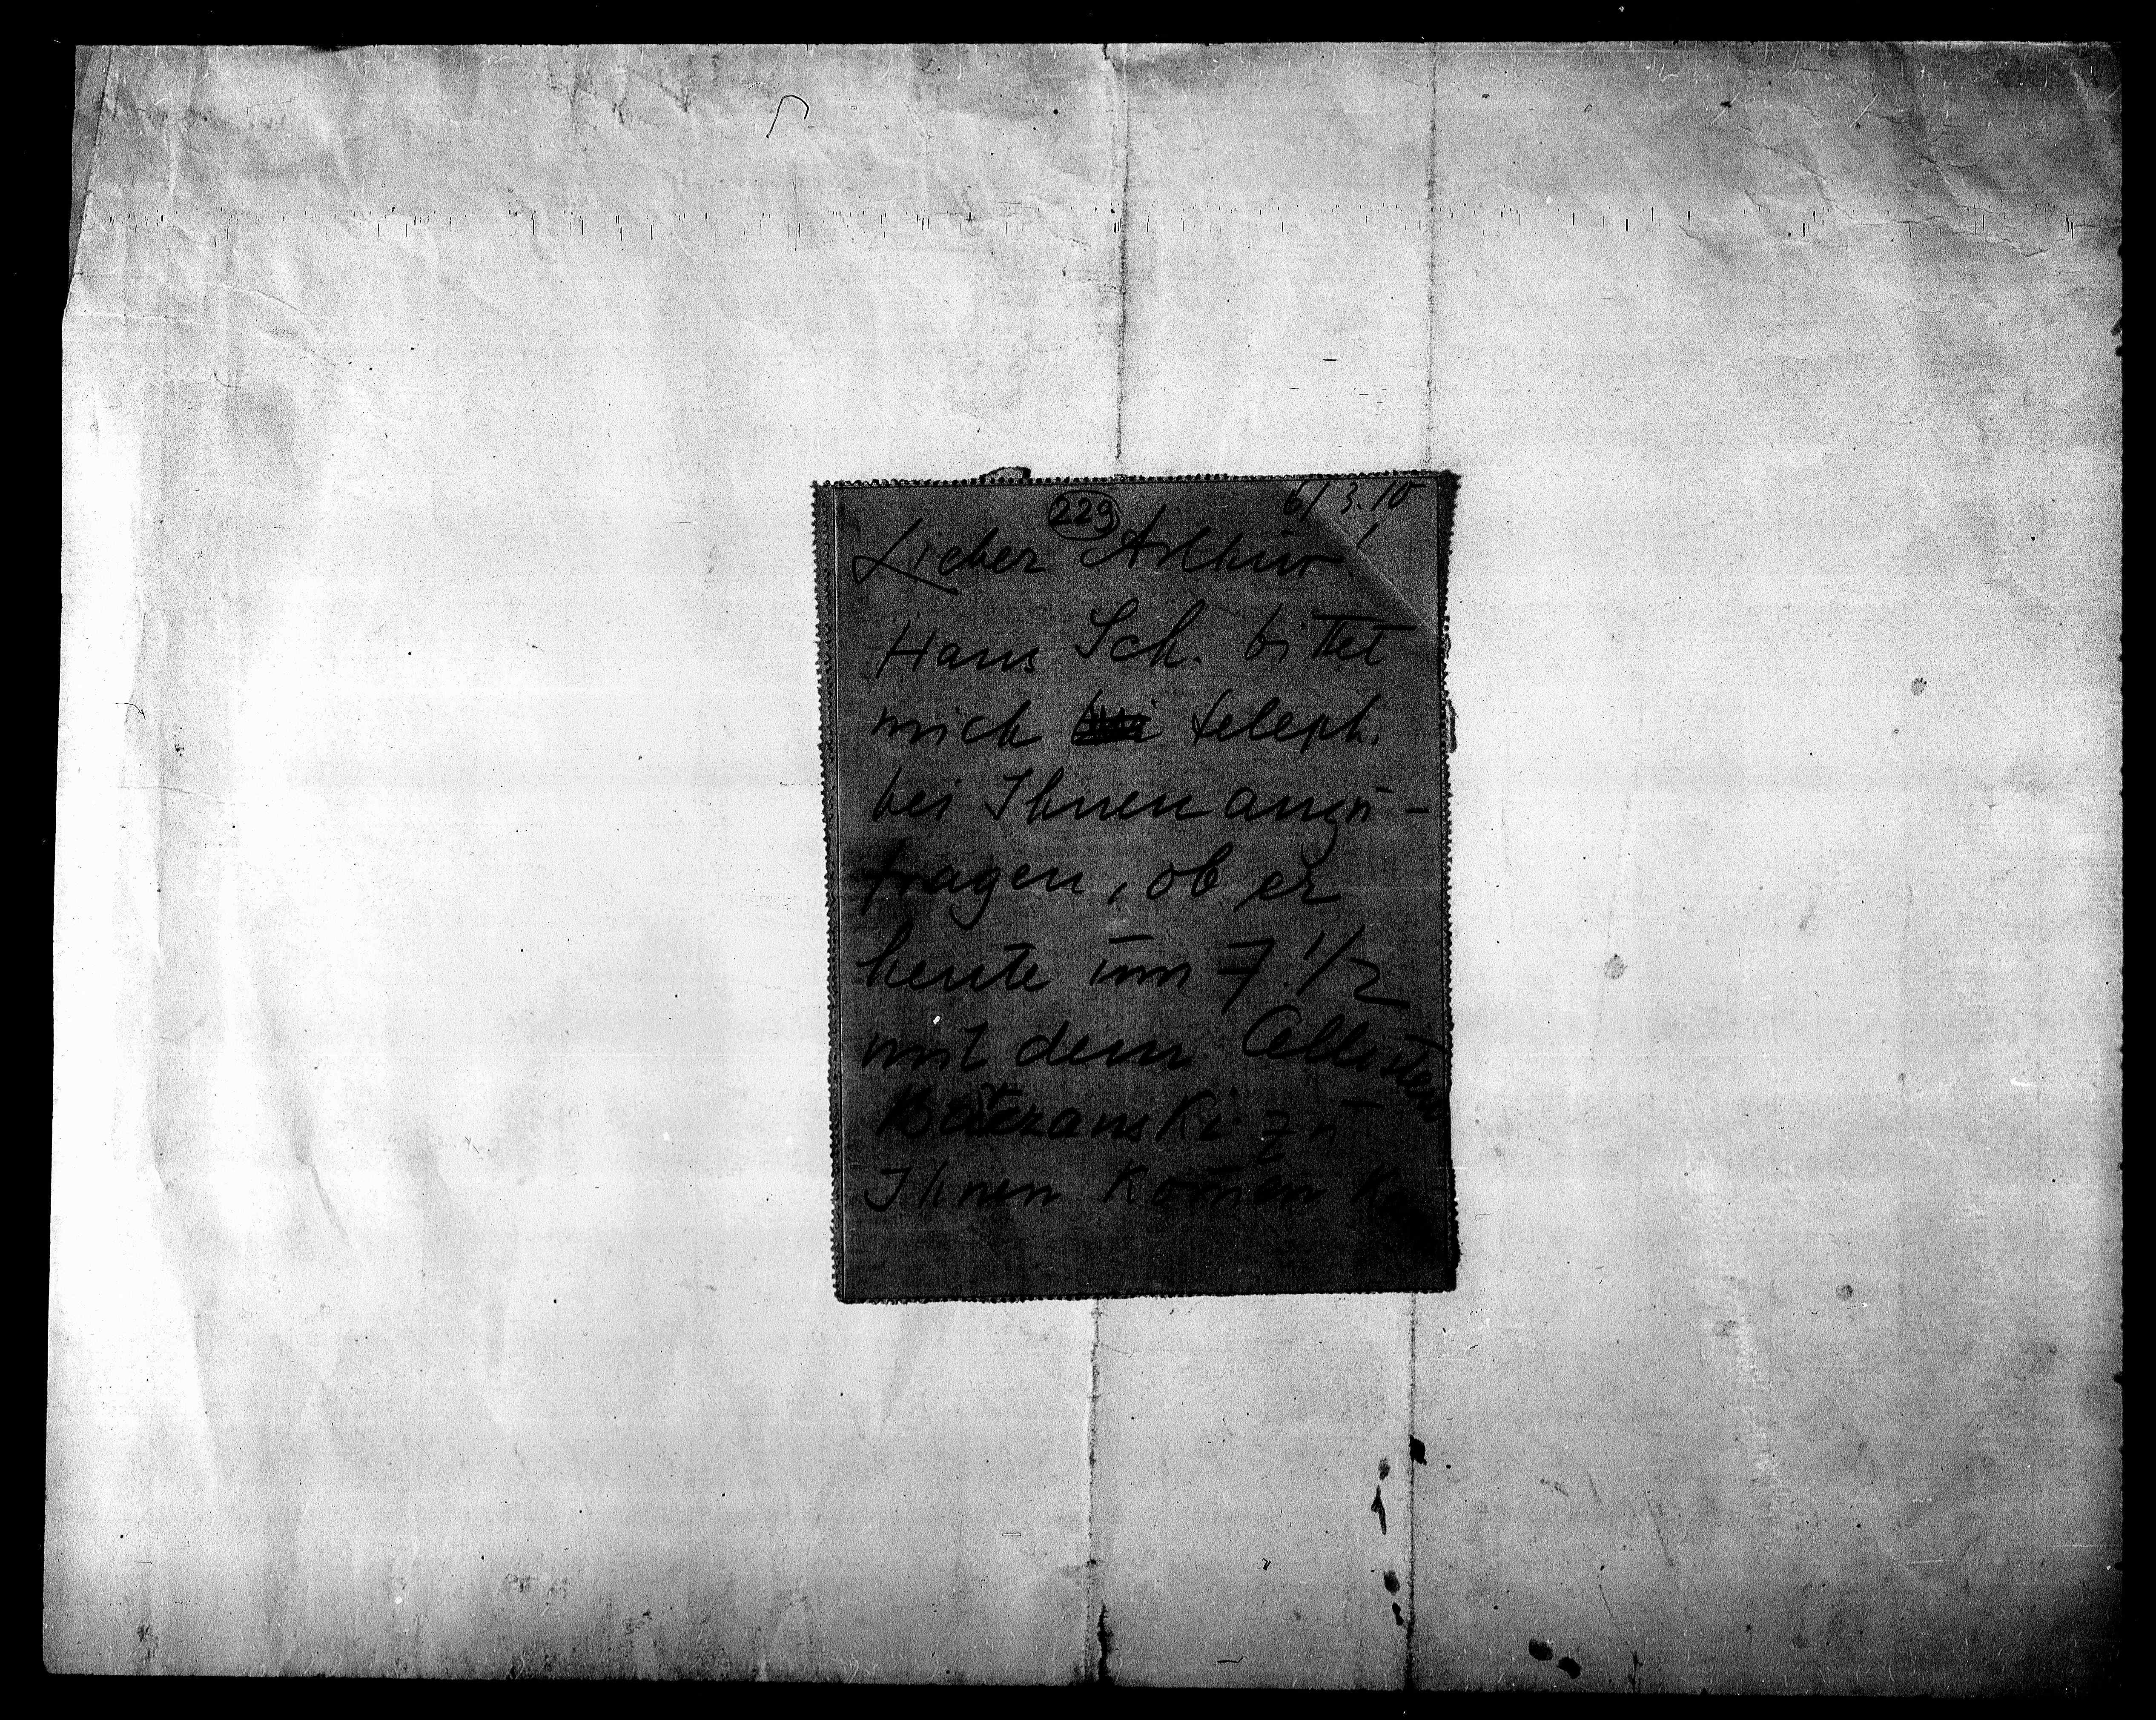 229
6/3.10
Lieber Arthur!
Hans Sch. bittet
mich teleph.
bei Ihnen anzu-
fragen, ob er
heute um 7 1/2
mit dem Cellisten
zu
Ihnen kom̄en